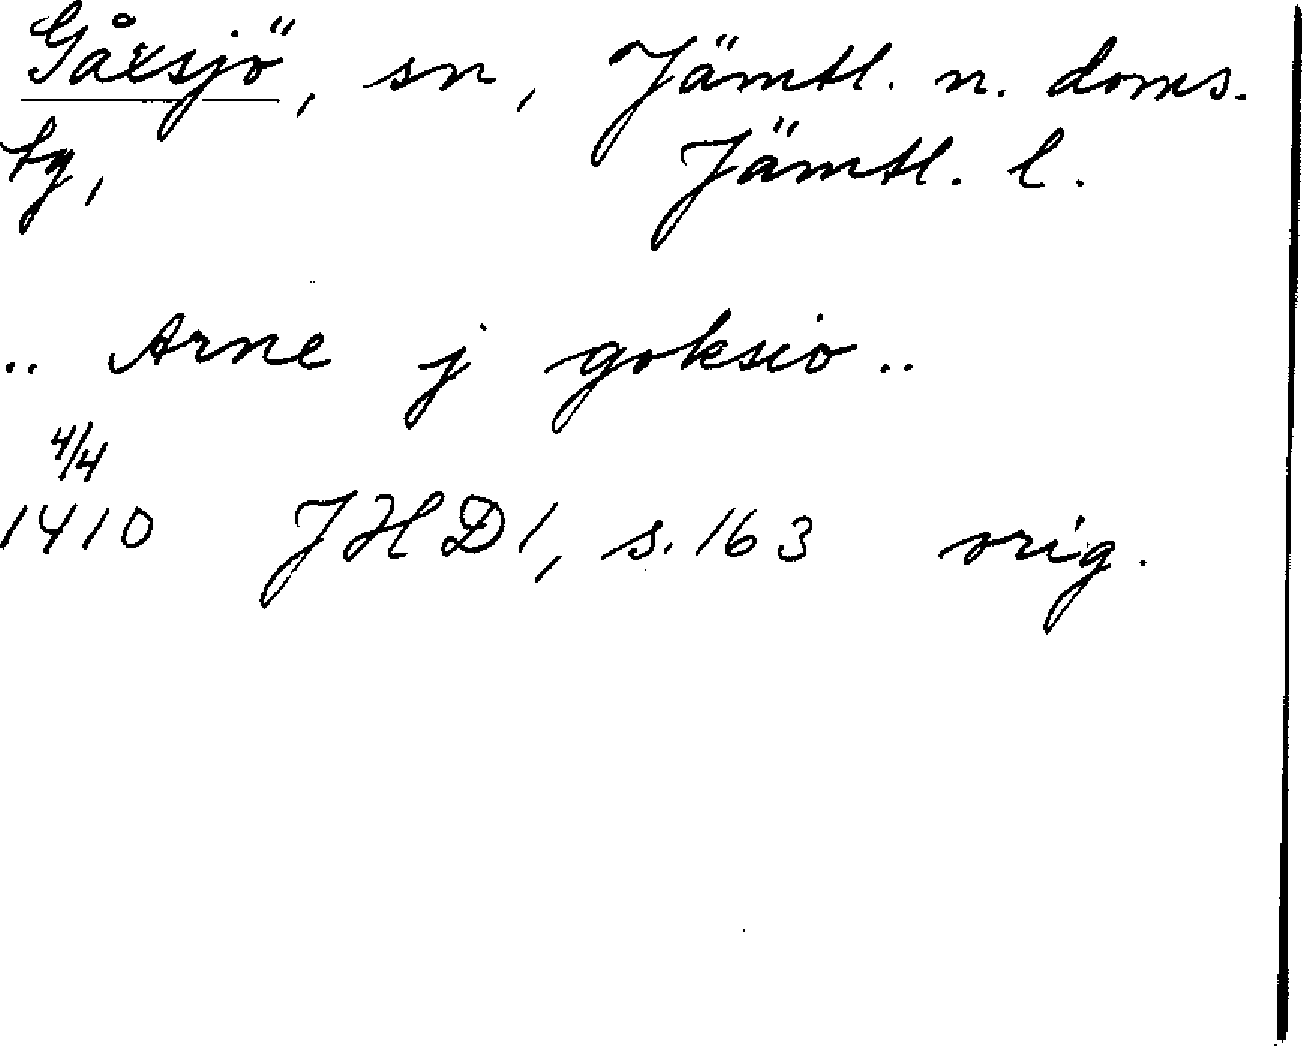 Gåxsjö, sn, Jämtl. n. doms.
tg, Jämtl. l.
.. Arne j goksio ..
4/4
1410 JHD 1, s. 163 orig.